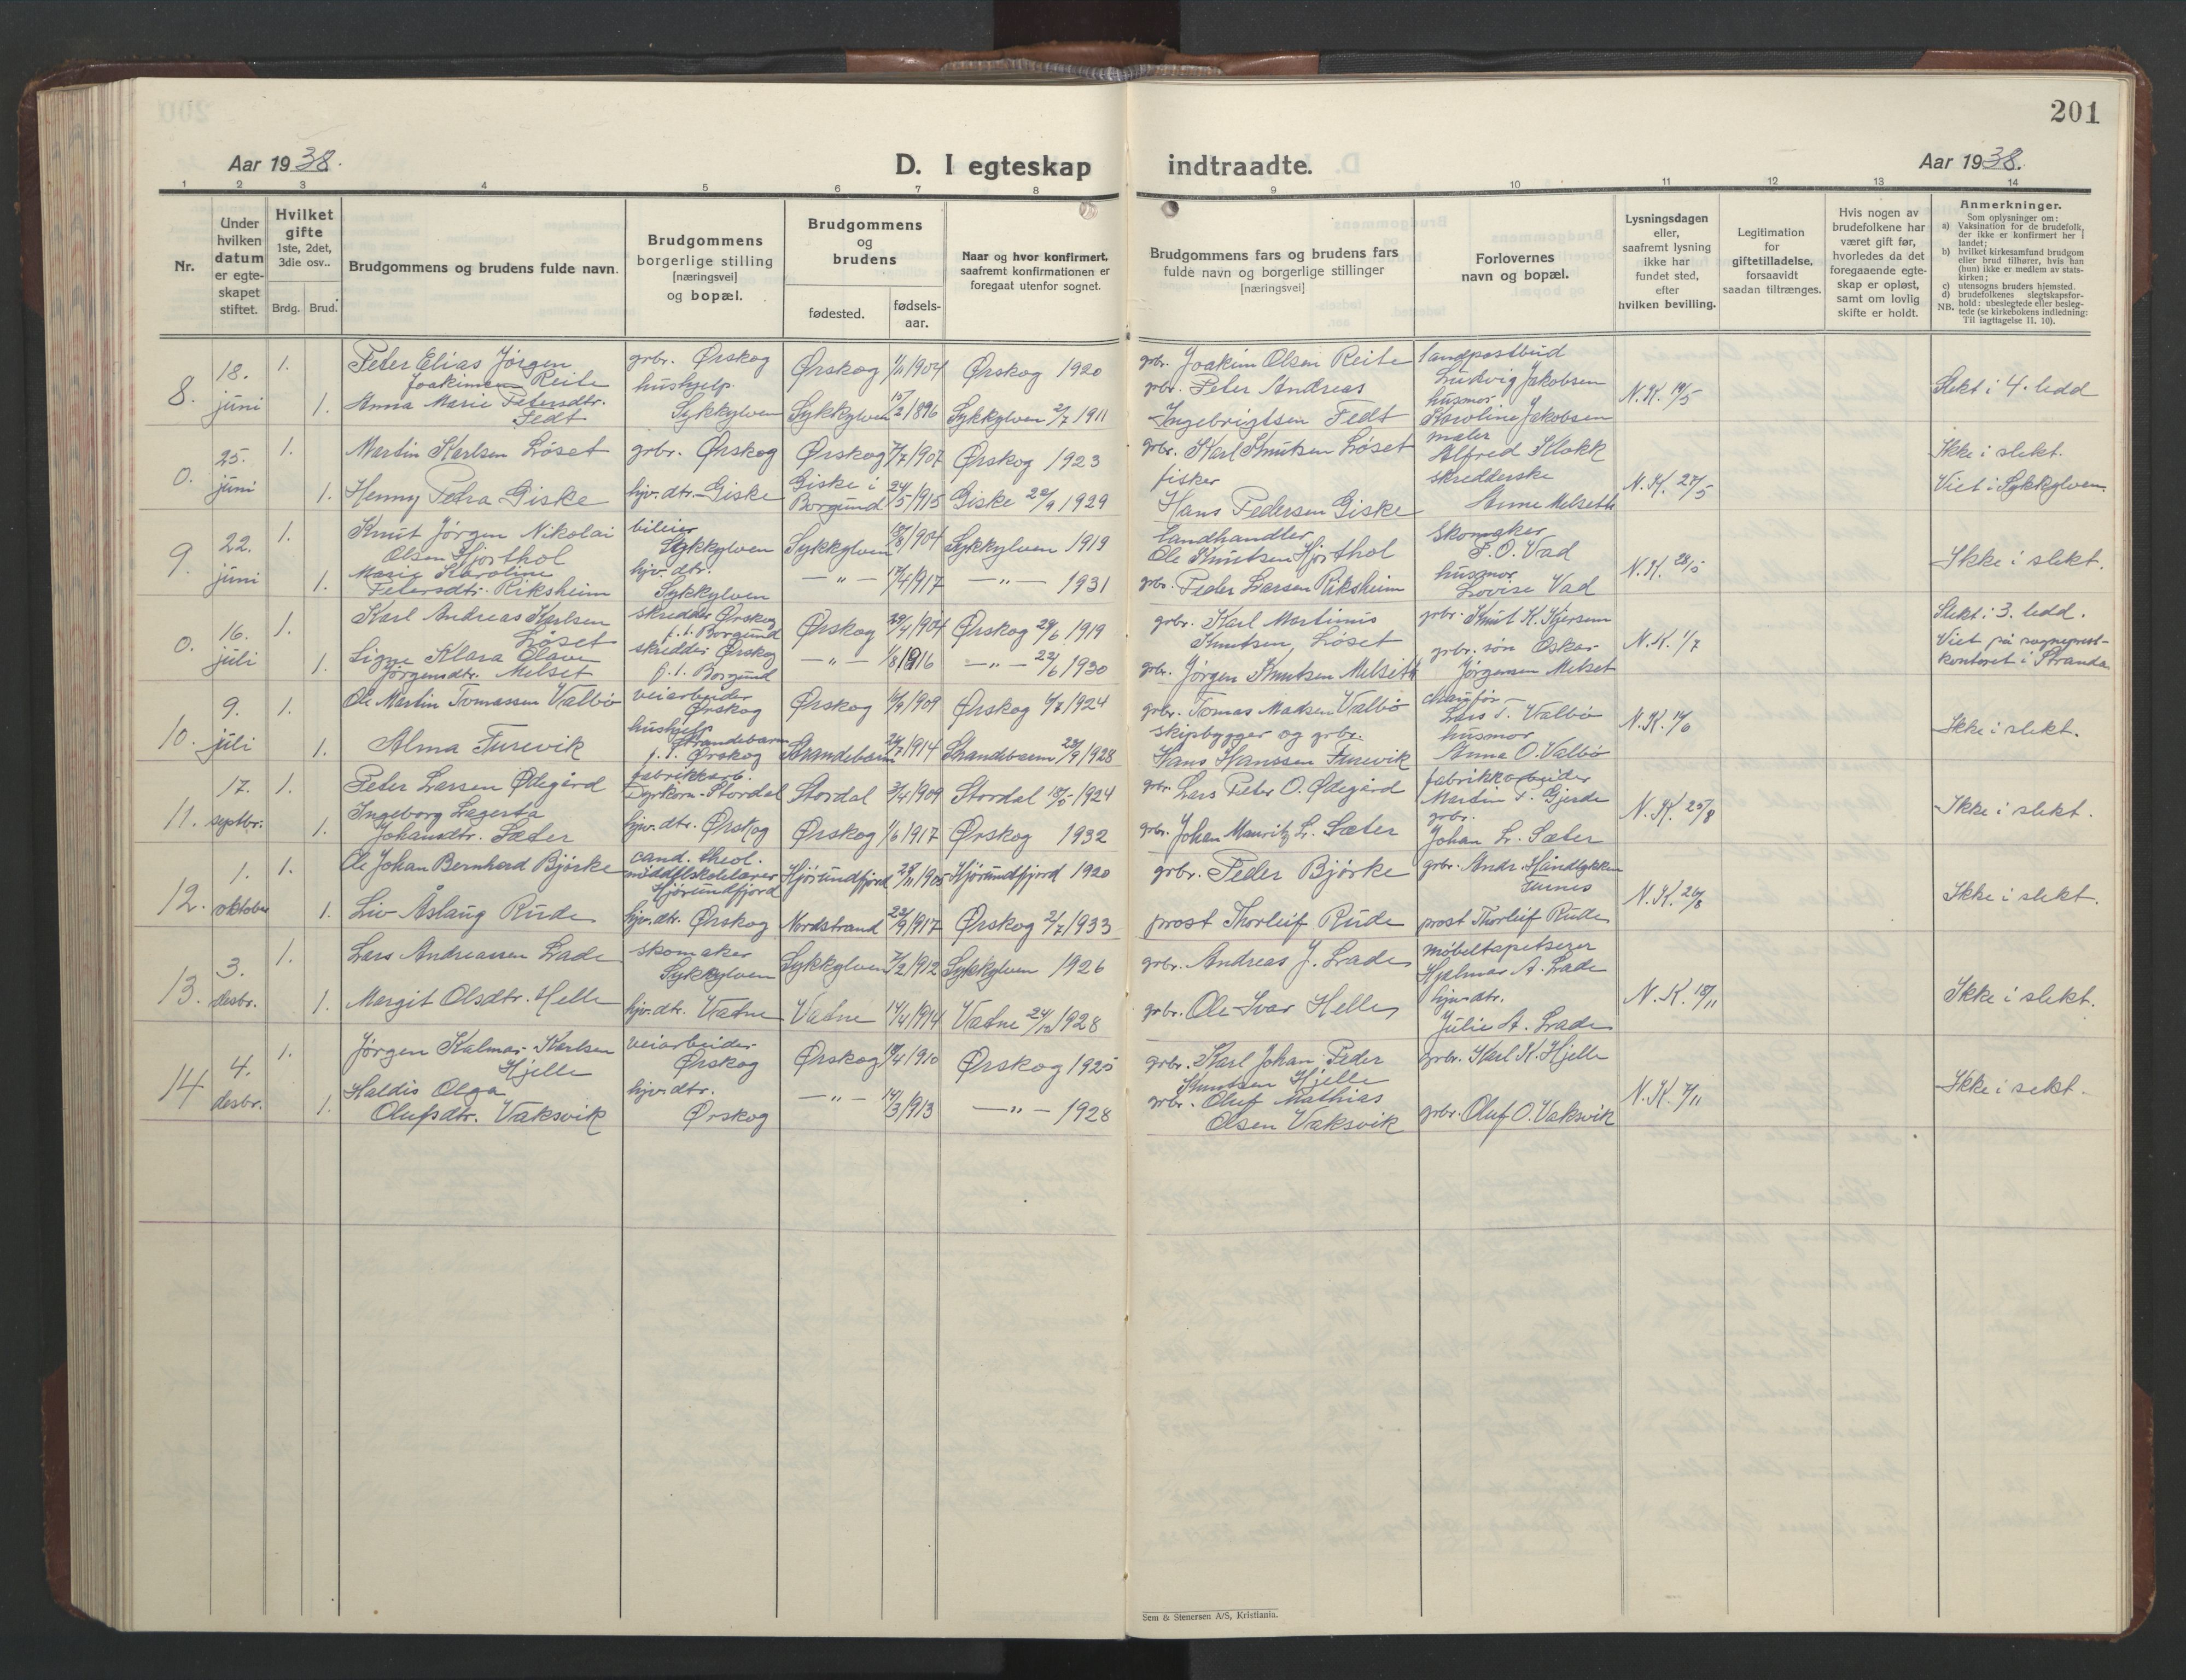 201
Aar 1938.
D. I egteskap indtraadte.
Aar 1938.
1 2 3 4 5 6 7 8 9 10 11 12 13 14
Nr.
Under hvilken datum er egteskapet stiftet.
Hvilket gifte 1ste, 2det, 3die osv..
Brdg. Brud.
Brudgommens og brudens fulde navn.
Brudgommens borgerlige stilling [næringsvei] og bopæl.
Brudgommens og brudens
fødested.
fødsels-aar.
Naar og hvor konfirmert. saafremt konfirmationen er foregaat utenfor sognet.
Brudgommens fars og brudens fars fulde navn og borgerlige stillinger [næringsvei]
Forlovernes navn og bopæl.
Lysningsdagen eller, saafremt lysning ikke har fundet sted, efter hvilken bevilling.
Legitimation for giftetilladelse, forsaavidt saadan tiltrænges.
Hvis nogen av brudefolkene har været gift før, hvorledes da det foregaaende egteskap er opløst, samt om lovlig skifte er holdt.
Anmerkninger.
Som oplysninger om:
a) Vaksination for de brudefolk, der ikke er konfirmert her i landet;
b) hvilket kirkesamfund brudgom eller brud tilhører, hvis han (hun) ikke er medlem av statskirken;
c) utensogns bruders hjemsted.
d) brudefolkenes slegtskapsforhold: ubeslegtede eller beslegtede (se kirkebokens indledning:
NB. Til iagttagelse II. 10).
8. 18. juni 1. Peter Elias Jørgen Joakimsen Reite grbr. Ørskog Ørskog 1/11 1904 Ørskog 1920 grbr. Joakim Olsen Reite landpostbud Ludvig Jakobsen N.K. 19/5 Slekt i 4. ledd
1. Anna Marie Petersdtr. Fedt hushjelp. Sykkylven Sykkylven 15/2 1896 Sykkylven 2/7 1911 grbr. Peter Andreas Ingebrigtsen Fedt husmor Karoline Jakobsen
0. 25. juni 1. Martin Karlsen Løset grbr. Ørskog Ørskog 7/7 1907 Ørskog 1923 grbr. Karl Knutsen Løset maler Alfred Klokk N.K. 27/5 Ikke i slekt. Viet i Sykkylven.
1. Henny Petra Giske hjv. dtr. Giske Giske i Borgund 24/5 1915 Giske 22/9 1929 fisker Hans Pedersen Giske skredderske Anne Melseth
9. 22. juni 1. Knut Jørgen Nikolai Olsen Hjorthol bileier Sykkylven Sykkylven 1904 Sykkylven 1919 Landhandler Ole Knutsen Hjorthol skomaker P. O. Vad N.K. 28/5 Ikke i slekt.
1. Marie Karoline Petersdtr. Riksheim hjv. dtr. Sykkylven —"— 17/4 1917 —"— 1931 grbr. Peder Larsen Riksheim husmor Lovise Vad
0. 16. juli 1. Karl Andreas Karlsen Løset skredder Ørskog f.t. Borgund Ørskog 29/4 1904 Ørskog 29/6 1919 grbr. Karl Martinus Knutsen Løset grbr. Knut K. N.K. 1/7 Slekt i 3. ledd. Viet på sogneprest-kontoret i Stranda
1. Signe Klara Olave Jørgensdtr. Melset skredder Ørskog f.t. Borgund —"— 1/8 1916 —"— 22/6 1930 grbr. Jørgen Knutsen Melseth grbr. søn Oskar Jørgensen Melset
10. 9. juli 1. Ole Martin Tomassen Valbø veiarbeider Ørskog Ørskog 1909 Ørskog 6/7 1924 grbr. Tomas Madsen Valbø chaufør Lars T. Valbø N.K. 14/6 Ikke i slekt.
1. Alma Furevik hushjelp Strandebarm f.t. Ørskog Strandebarm 1914 Strandebarm 23/9 1928 skipsbygger og grbr. Hans Hanssen Furevik husmor Anna O. Valbø
11. 17. septbr. 1. Peter Larsen Ødegård fabrikkarb. Dyrkorn-Stordal Stordal 3/4 1909 Stordal 18/5 1924 grbr. Lars Peter O. Ødegård fabrikkarbeider Martin P. Gjerde N.K. 25/8 Ikke i slekt.
1. Ingeborg Lagerta Johansdtr. Sæter hjv. dtr. Ørskog Ørskog 1/6 1917 Ørskog 1932 grbr. Johan Mauritz L. Sæter grbr. Johan L. Sæter
12. 1. oktober 1. Ole Johan Bernhard Bjørke cand. theol. middelskolelærer Hjørundfjord Hjørundfjord 28/11 1905 Hjørundfjord 1920 grbr. Peder Bjørke grbr. Andr. Håndlykken N.K. 26/8 Ikke i slekt.
1. Liv Åslaug Rude hjv. dtr. Ørskog Nordstrand 22/9 1917 Ørskog 2/7 1933 prost Thorleif Rude prost Thorleif Rude
13. 3. desbr. 1. Lars Andreassen Lade skomaker Sykkylven Sykkylven 7/2 1912 Sykkylven 1926 grbr. Andreas J. Lade møbeltapetserer Hjalmar A. Lade N.K. 18/11 Ikke i slekt.
1. Margit Olsdtr. Helle hjv. dtr. Vatne Vatne 14/4 1914 Vatne 1928 grbr. Ole Ivar Helle hjv. dtr. Julie A. Lade
14 4. desbr. 1. Jørgen Kalmar Karlsen Hjelle veiarbeider Ørskog Ørskog 1910 Ørskog 1925 grbr. Karl Johan Peder Knutsen Hjelle grbr. Karl K. Hjelle N.K. 7/11 Ikke i sekt.
1. Haldis Olga Olufsdtr. Vaksvik hjv. dtr. Ørskog —"— 14/3 1913 —"— 1928 grbr. Oluf Mathias Olsen Vaksvik grbr. Oluf O. Vaksvik
Sem & Stenersen A/S, Kristiania.